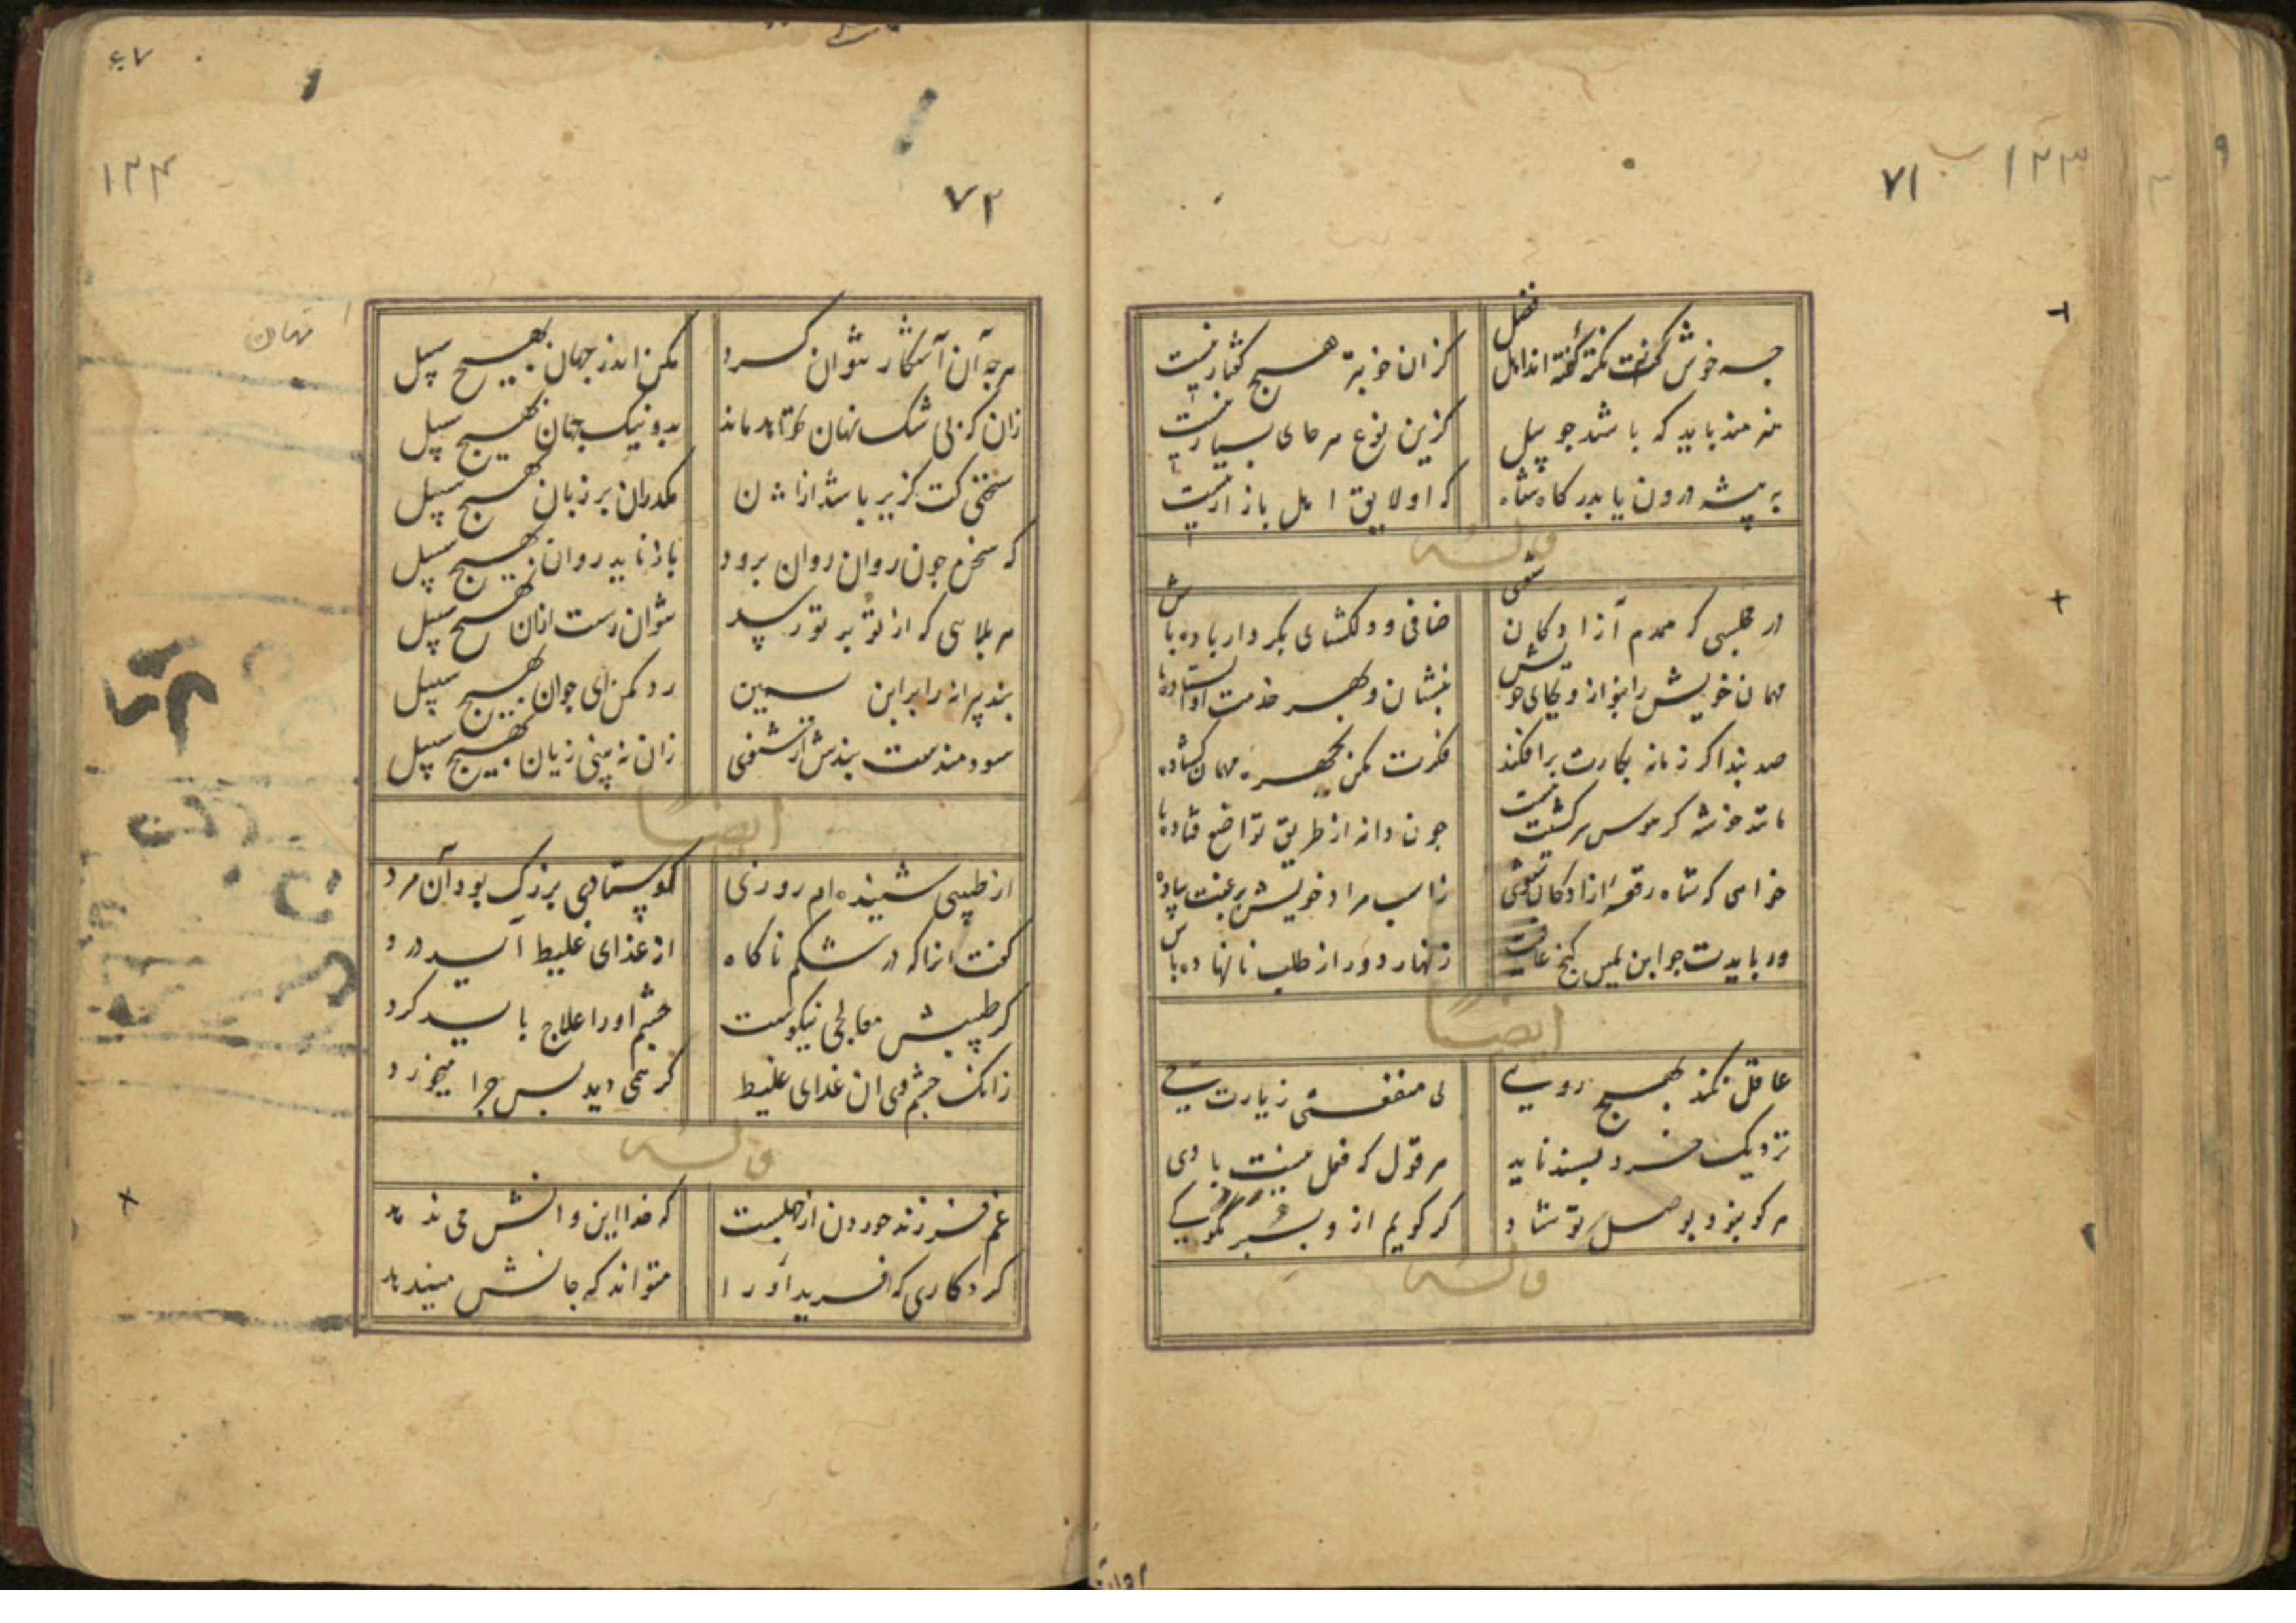 ۷۱
۱۲۳
چه خوش گفت نکته گفته‌اند اهل فضل
کزان خوبتر هیچ گفتار نیست
هنرمند باید که باشد چو پیل
کزین نوع هر جای بسیار نیست
به بیشه درون یا بدرگاه شاه
که او لایق اهل بازار نیست
وله
در مجلسی که همدم آزادگان شوی
صافی و دلگشای بکردار باده باش
مهمان خویش را بنواز و بجای خویش
بنشان و بهر خدمت او ایستاده باش
صد بند اگر زمانه بکارت برافکند
فکرت مکن بچهره مهمان گشاده باش
مانند خوشه گر هوس سرکشیت نیست
چون دانه از طریق تواضع فتاده باش
خواهی که شاه رقعه آزادگان شوی
ز اسب مراد خویش برغبت پیاده باش
ور بایدت چو ابن یمین گنج عافیت
زنهار دور از طلب نانهاده باش
ایضا
عاقل نکند بهیچ رویی
بی منفعتی زیارت
نزدیک خرد پسند ناید
هر قول که فعل نیست با وی
هر کو نبود بوصل تو شاد
گر گویم از و بشر نگویی
وله
۷۲
۱۲۴
۶۷
نهان
هرچه آن آشکار نتوان کرد
مکن اندر جهان بهیچ سبیل
زان که بی شک نهان نماند
بد و نیک جهان بهیچ سبیل
سخنی کت گزیر باشد از آن
مگذران بر زبان بهیچ سبیل
که سخن چون روان روان برود
باز ناید روان بهیچ سبیل
هر بلایی که از تو بر تو رسد
نتوان رست ازان بهیچ سبیل
پند پیرانه را بر ابن یمین
رد مکن ای جوان بهیچ سبیل
سودمندست پندش ار شنوی
زان نه بینی زیان بهیچ سبیل
ایضا
از طبیبی شنیده‌ام روزی
کوستادی بزرگ بود آن مرد
گفت انرا که در شکم ناگاه
از غذای غلیظ آید درد
گر طبیبش معالجی نیکوست
چشم او را علاج باید کرد
زانک چشم وی ان غذای غلیظ
گر همی دید پس چرا میخورد
وله
غم فرزند خوردن از جهلست
که خدا این و انش می‌ندهد
کردگاری که افرید او را
متواند که جانش میندهد